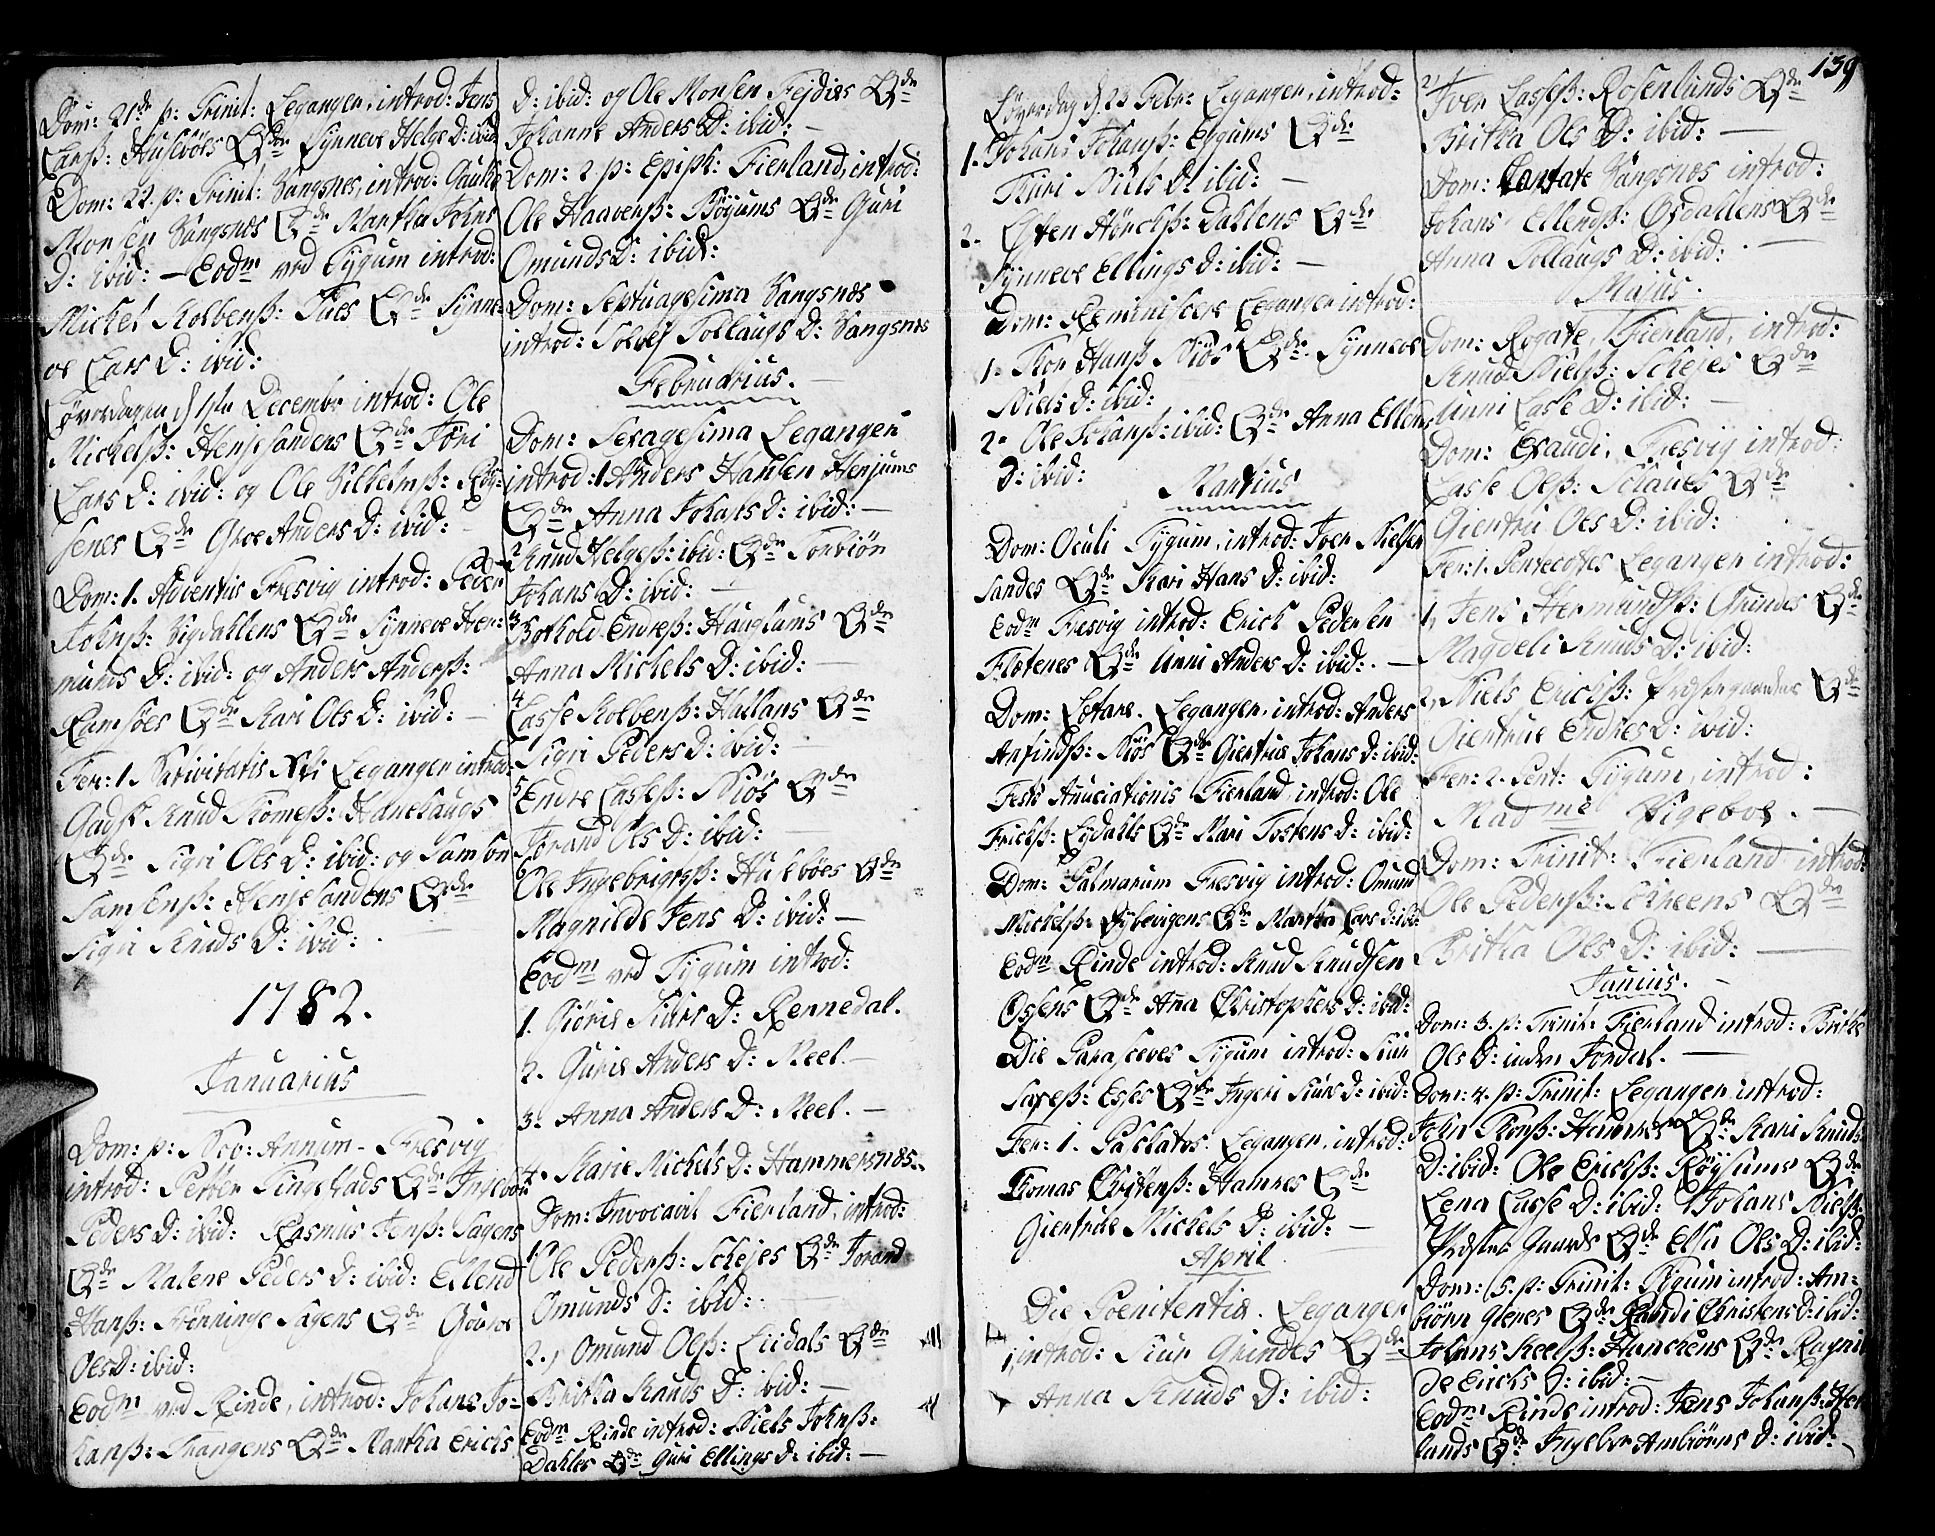 Dom: 21de p: Trinit: Leganger, introd: Jens
Larsß: Huseböes Qde Synneve Helge D: ibid
Dom: 22. p: Trinit: Vangsnes, introd: Gaute
Monsen Vangsnes Qde Martha Johns
D: ibid: — Eodm ved Tygum introd:
Michel Kolbensß: Qde Synne-
ve Lars D: ibid:
Løverdagen d 1ste Decembr introd: Ole
Michelsß: Henjesanders Qde Jöri
Lars D: ibid: og Ole Vilhelmsß: Röy-
senes Qde Groe Anders D: ibid:
Dom: 1. Adventus Fresvig introd: Peder
Johnsß: Vigdahlens Qde Synneve Her-
munds D: ibid: og Anders Andersß:
Ramsöes Qde Kari Ols D: ibid: —
Fer: 1. Nativitatis Xti Leganger introd:
Gadst Knud Hanehaugs
Qde Sigri Ols D: ibid: og Samson
Samsnsß: Henjesandens Qde
Sigri Knuds D: ibid:
1782.
Januarius
Dom: p: Nov: Annum - Fresvig
introd: Petter Tingstads Qde Ingebor
Peders D: ibid: Rasmus Jensß: Sagens
Qde Malene Peders D: ibid: Ellend
Hansß: Fönninge Sagens Qde Göroe
Ols D: ibid:
Eodm ved Rinde, introd: Johans Jo-
hansß: Thangens Qde Martha Erichs
D: ibid: og Ole Monsen Fejdies Qde
Johanne Anders D: ibid: —
Dom: 2 p: Epiph: Fierland, introd:
Ole Haavensß: Böyums Qde Guri
Omunds D: ibid:
Dom: Septuagesima Vangsnes
introd: Solvej Tollaugs D: Vangsnes
Februarius. —
Dom: Sexagesima Leganger
introd: 1 Anders Hansen Henjums
Qde Anna Johans D: ibid: —
2 Knud Helgesß: ibid: Qde Torbiör
Johans D: ibid: —
3 Bothold Endresß: Hauglums Qde
Anna Michels D: ibid: —
4 Lasse Kolbensß: Hallans Qde
Sigri Peders D: ibid: —
5 Endre Lassesß: Niös Qde
Jorand Ols D: ibid: —
6 Ole Ingebrigtsß: Huseböes Qde
Magnilde Jens D: ibid: —
Eodm ved Tygum introd:
1. Giörie Siurs D: Rennedal.
2. Gurie Anders D: Meel. —
3. Anna Anders D: Meel. —
4. Marie Michels D: Hammersnes.
Dom: Invocavit Fierland, introd:
1. Ole Pedersß: Schejes Qde Jorand
Omunds D: ibid:
2. Omund Olsß: Lidals Qde
Britha Knuds D: ibid: —
Eodm Rinde introd: Niels Johnsß:
Dahles Qde Guri Ellings D: ibid: —
Løverdag d. 23 Febr: Leganger, introd:
1. Johans Johansß: Eggums Qde
Kari Niels D: ibid: —
2. Østen Hörchsß: Dahlens Qde
Synneve Ellings D: ibid: —
Dom: Reminiscere Leganger introd:
1. Thor Hansß Niös Qde Synneve
Niels D: ibid:
2. Ole Johansß: ibid: Qde Anna Ellens
D: ibid:
Martius
Dom: Oculi Tygum, introd: Iver Nielsen
Sandes Qde Kari Hans D: ibid:
Eodm Fresvig introd: Erick Pedersen
Flotenes Qde Unni Anders D: ibid: —
Dom: Lætare. Leganger, introd: Anders
Anfindsß: Niös Qde Giertrue Johans D: ibid:
Festo Anuciationis Fierland introd: Ole
Erichsß: Lydahls Qde Mari Tostens D: ibid:
Dom: Palmarum Fresvig introd: Omund
Michelsß: Dybevigens Qde Martha Lars D: ibid
Eodm Rinde introd: Knud Knudsen
Ossens Qde Ana Christophers D: ibid:
Die Parasceves Tygum introd: Siur
Saxesß: Esses Qde Ingeri Siurs D: ibid:
Fer: 1. Paschatos. Leganger, introd:
Thomas Christensß: Hamres Qde
Giertrude Michels D: ibid: —
April
Die Poenitentiæ. Leganger
1, introd: Siur Grindes Qde
Anna Knuds D: ibid:
139
2, Iver Lassesß: Rosenlunds Qde
Britha Ols D: ibid: —
Dom: Cantate Vangsnes introd:
Johans Ellendsß: Øsdallens Qde
Anna Tollaugs D: ibid: —
Majus.
Dom: Rogate, Fierland, introd:
Knud Nielsß: Schejes Qde
Unni Lasse D: ibid: —
Dom: Exaudi, Fresvig introd:
Lasse Olsß: Qde
Giertru Ols D: ibid:
Fer: 1. Pentecostes Leganger introd:
1, Jens Hermundsß: Grindes Qde
Magdeli Knuds D: ibid:
2, Niels Erichsß: Præstegaardes Qde
Giertrue Endres D: ibid:
Fer: 2. Pent: Tygum, introd:
Madme Vigeboe. —
Dom: Trinit: Fierland introd:
Ole Pedersß: Qde
Britha Ols D: ibid: —
Junius. —
Dom: 3. p: Trinit: Fierland introd: Brithe
Ols D: inden Jorderl. —
Dom: 4. p: Trinit: Leganger introd:
John Hamres Qde Kari Knuds
D: ibid: Ole Erichsß: Röysums Qde
Lena Lasse D: ibid: Johans Nielsß:
Præste Gaards Qde Elsa Ols D: ibid:
Dom: 5. p: Trinit: Tygum introd: Am-
biörn Glenes Qde Randi Christens D: ibid:
Johans Keelsß: Hanckens Qde Ragnil-
de Erichs D: ibid: —
Eodm Rinde introd: Jens Johansß:
lands Qde Ingebor Ambiörns D: ibid: